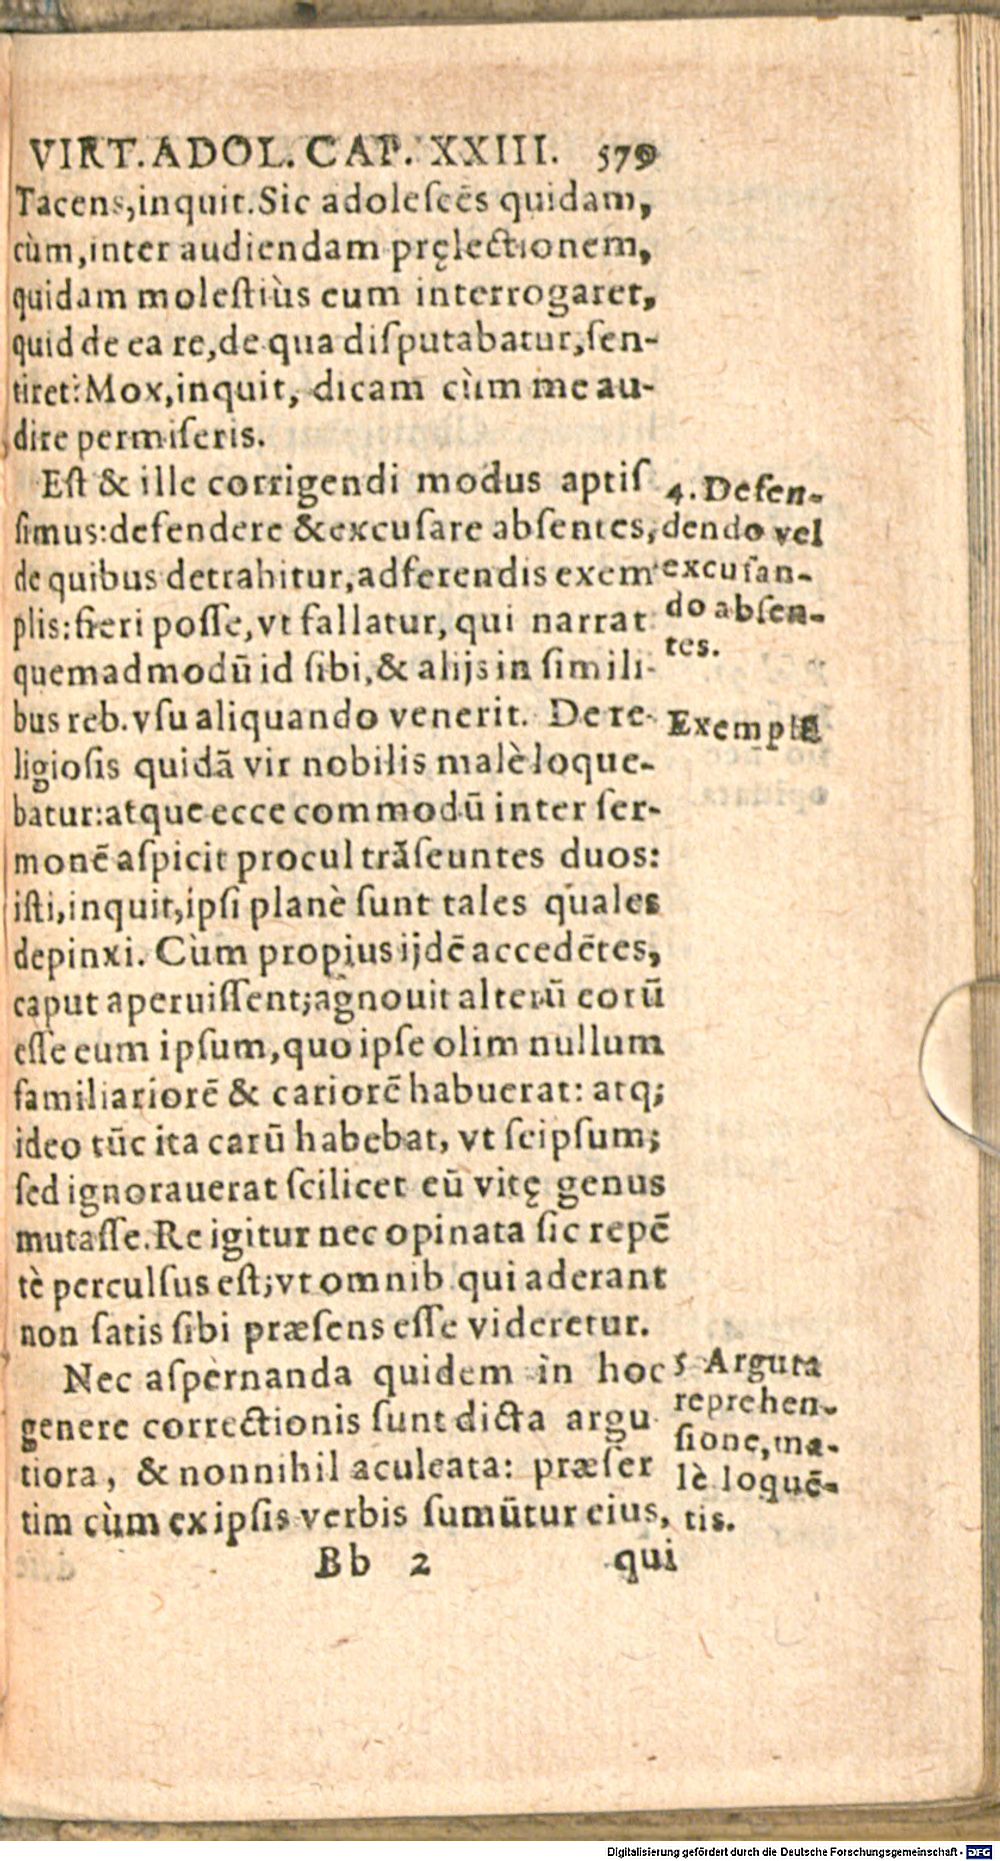 VIRT. ADOL. CAP. XXIII. 579
Tacens, inquit. Sic adolescẽs quidam,
cùm, inter audiendam pręlectionem,
quidam molestiùs eum interrogaret,
quid de ea re, de qua disputabatur, sen-
tiret: Mox, inquit, dicam cùm me au-
dire permiseris.
Est & ille corrigendi modus aptis
simus: defendere & excusare absentes,
de quibus detrahitur, adferendis exem
plis: fieri posse, vt fallatur, qui narrat
quemadmodũ id sibi, & alijs in simili-
bus reb. vsu aliquando venerit. De re-
ligiosis quidã vir nobilis malè loque-
batur: atque ecce commodũ inter ser-
monẽ aspicit procul trãseuntes duos:
isti, inquit, ipsi planè sunt tales quales
depinxi. Cùm propius ijdẽ accedẽtes,
caput aperuissent; agnouit alterũ eorũ
esse eum ipsum, quo ipse olim nullum
familiariorẽ & cariorẽ habuerat: atq;
ideo tũc ita carũ habebat, vt seipsum;
sed ignorauerat scilicet eũ vitę genus
mutasse. Re igitur nec opinata sic repẽ
tè perculsus est; vt omnib. qui aderant
non satis sibi præsens esse videretur.
Nec aspernanda quidem in hoc
genere correctionis sunt dicta argu
tiora, & nonnihil aculeata: præser
tim cùm ex ipsis verbis sumũtur eius,
Bb 2 qui
4. Defen-
dendo vel
excusan-
do absen-
tes.
Exempla
5 Arguta
reprehen-
sione, ma-
lè loquẽ-
tis.
Digitalisierung gefördert durch die Deutsche Forschungsgemeinschaft - DFG